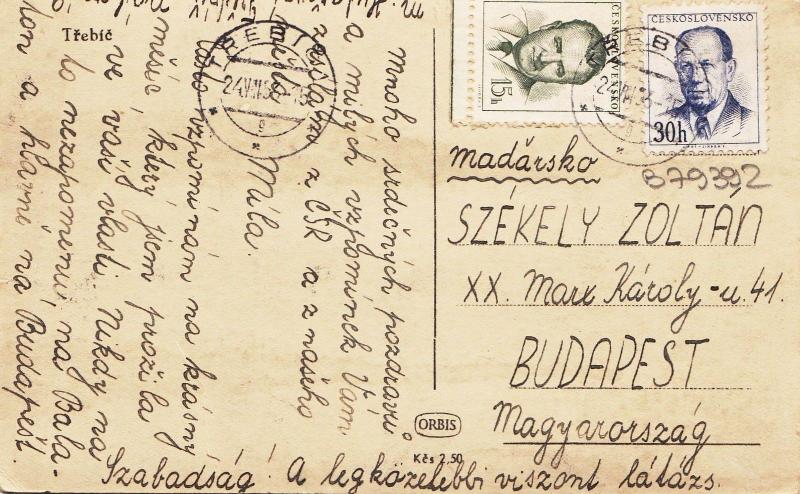 Třebíč
TŘEBÍČ
ČESKOSLOVENSKO
15h
ČESKOSLOVENSKO
30h
Mnoho srdečných pozdravů
a milých vzpomínek Vám
zasílá z ČSR a z našeho
Míla.
vzpomínám na krásný
měsíc, který jsem prožila
ve vaší vlasti. Nikdy na
to nezapomenu, na Bala-
ton a hlavně na Budapešť.
Szabadság! A legközelebbi viszont látázs.
ORBIS
Kčs 2,50
Maďársko
B79392
SZÉKELY ZOLTÁN
XX. Marx Károly-u. 41.
BUDAPEST
Magyarország